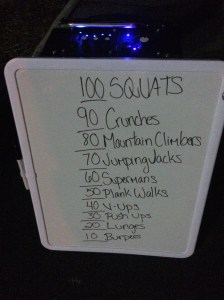 100 SQUATS
90 Crunches
80 Mountain Climbers
70 Jumping Jacks
60 Supermans
50 Plank Walks
40 V-Ups
30 Push Ups
20 Lunges
10 Burpees